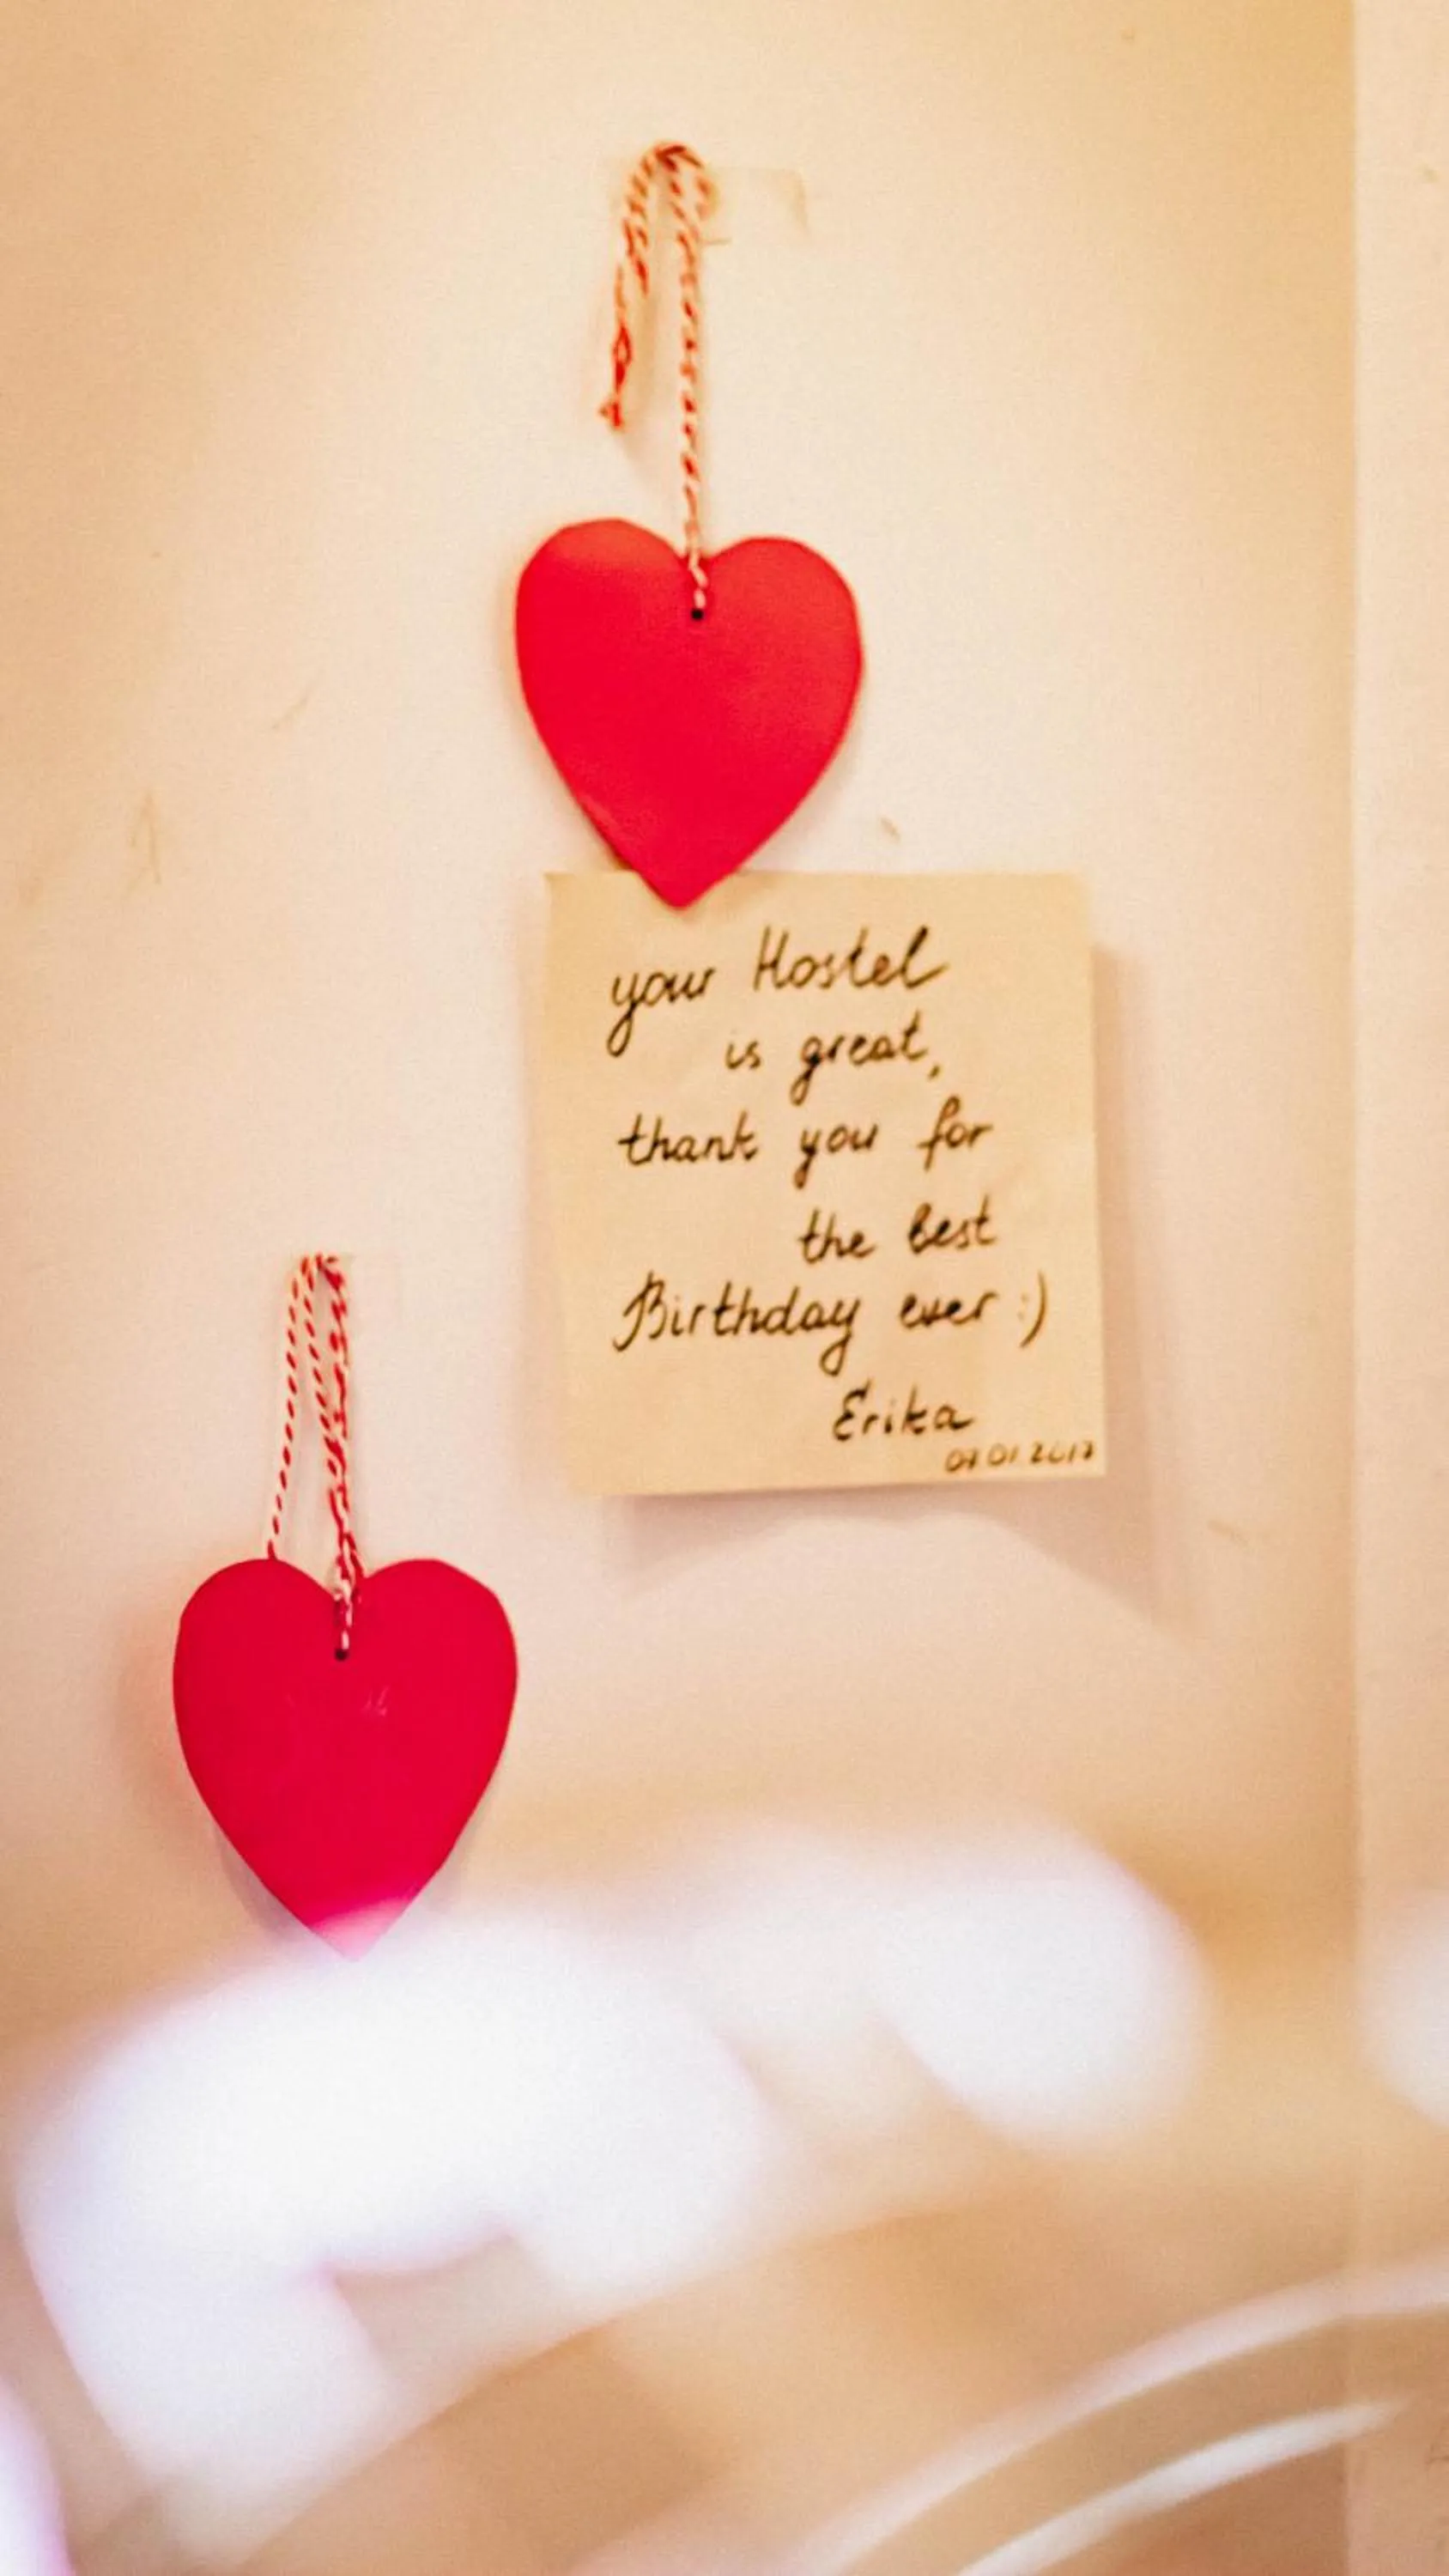 your Hostel
is great,
thank you for
the best
Birthday ever :)
Erika